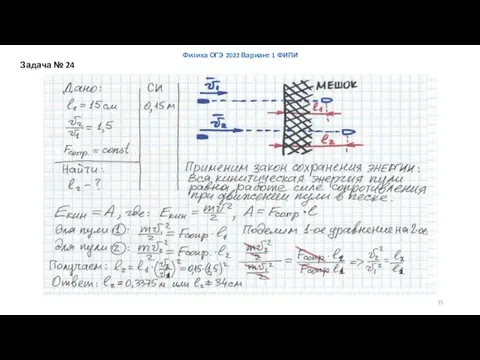 Физика ОГЭ 2022 Вариант 1 ФИПИ
Задача № 24
Дано:
l₁ = 15 см
v₂/v₁ = 1,5
Fсопр. = const
Найти:
l₂ - ?
СИ
0,15 м
v̅₁
v̅₂
МЕШОК
l₁
l₂
Применим закон сохранения энергии:
Вся кинетическая энергия пули
равна работе силе сопротивления
при движении пули в песке.
Eкин = A, где: Eкин = mv²/2, A = Fсопр · l
Для пули ①: mv₁²/2 = Fсопр · l₁
Для пули ②: mv₂²/2 = Fсопр · l₂
Поделим 1-ое уравнение на 2-ое
Получаем: l₂ = l₁ · (v₂/v₁)² = 0,15·(1,5)²
Ответ: l₂ = 0,3375 м или l₂ ≈ 34 см
35